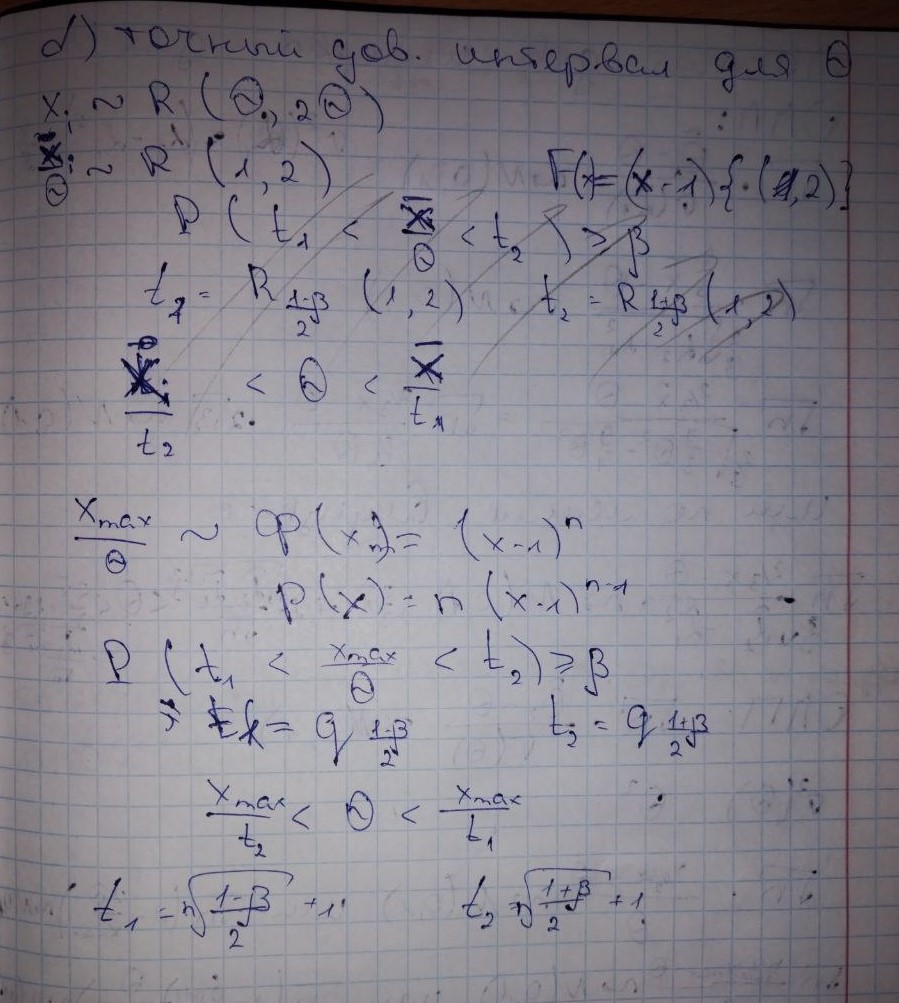 d) точный дов. интервал для θ
x_i ~ R (θ, 2θ)
x/θ ~ R (1, 2) F(x)=(x-1){·(1,2)}
P ( t_1 < x/θ < t_2 ) ≥ β
t_1 = R_{(1-β)/2} (1, 2) t_2 = R_{(1+β)/2} (1, 2)
x/t_2 < θ < x/t_1
x_max/θ ~ φ(x) = (x-1)^n
p(x) = n (x-1)^{n-1}
P ( t_1 < x_max/θ < t_2 ) ≥ β
t_1 = q_{(1-β)/2} t_2 = q_{(1+β)/2}
x_max/t_2 < θ < x_max/t_1
t_1 = ⁿ√((1-β)/2) + 1 t_2 = ⁿ√((1+β)/2) + 1